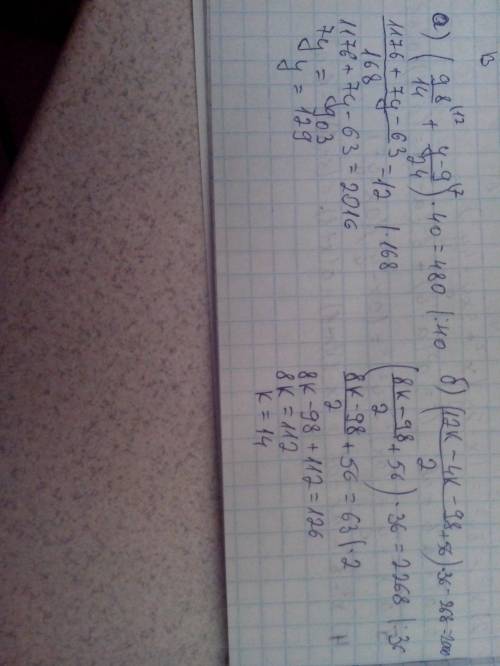 а) (98/14 |12 + y-9/24 |7) · 40 = 480 |:40
1176 + 7y - 63 / 168 = 12 |·168
1176 + 7y - 63 = 2016
7y = 903
y = 129
б) (12k - 4k - 98 / 2 + 56) · 36 - 268 = 2000
(8k - 98 / 2 + 56) · 36 = 2268 |:36
8k - 98 / 2 + 56 = 63 |·2
8k - 98 + 112 = 126
8k = 112
k = 14